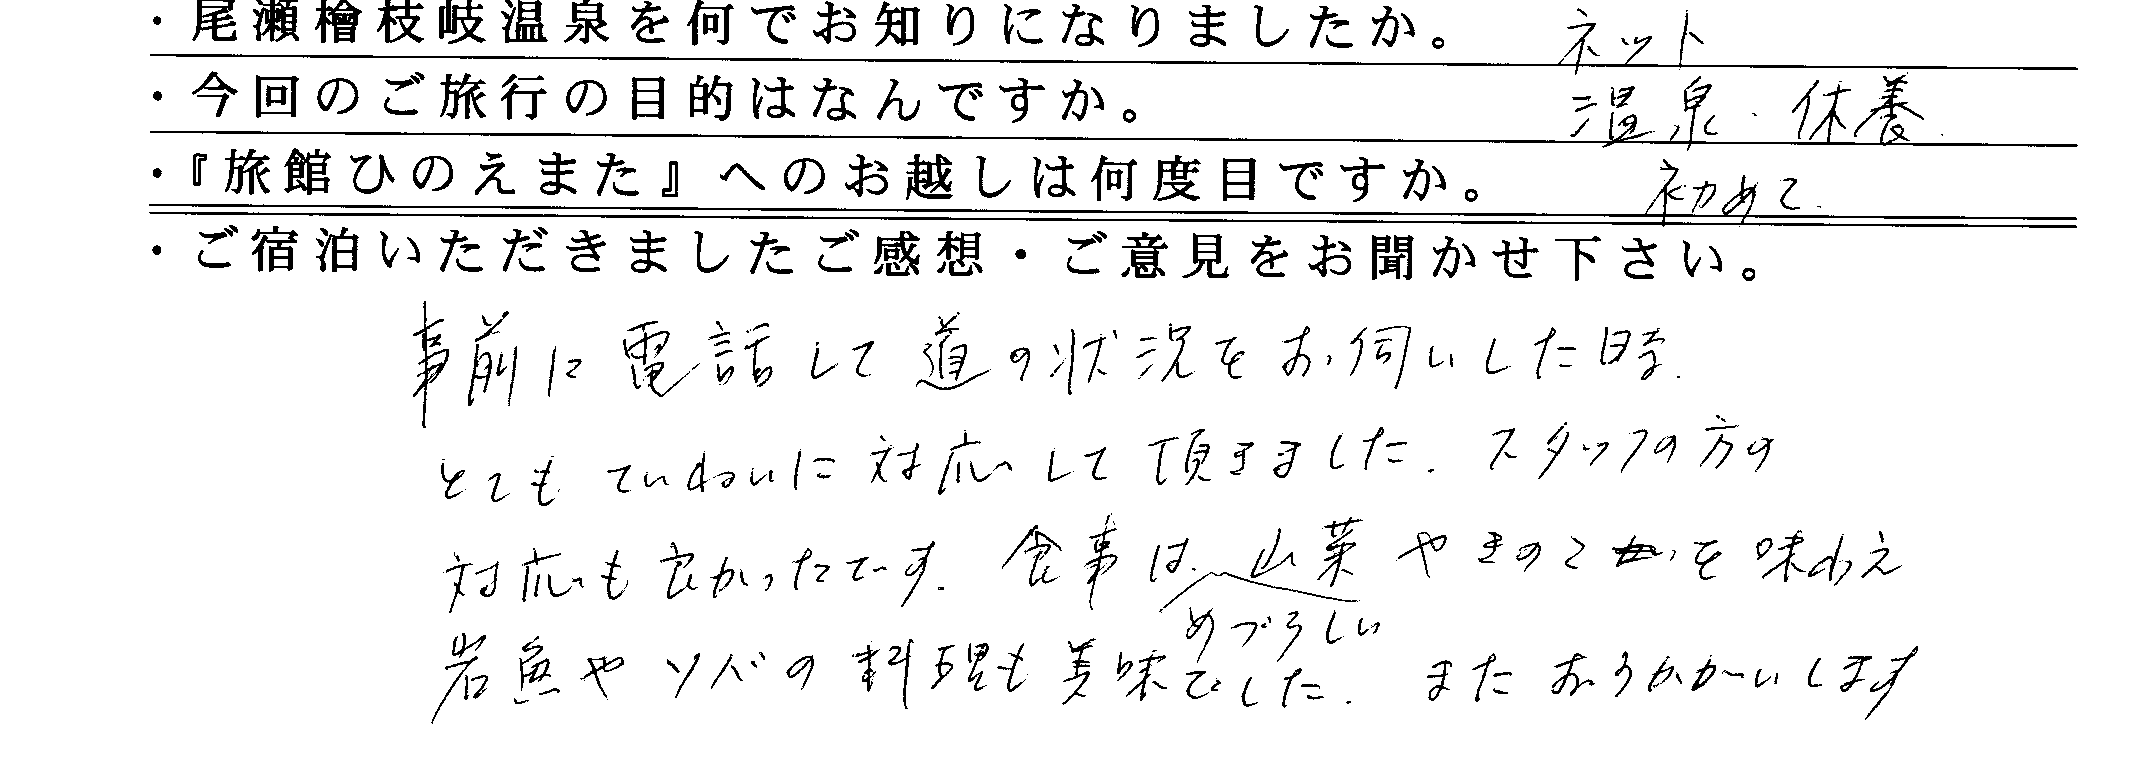 ・尾瀬檜枝岐温泉を何でお知りになりましたか。 ネット
・今回のご旅行の目的はなんですか。 温泉・休養.
・『旅館ひのえまた』へのお越しは何度目ですか。 初めて.
・ご宿泊いただきましたご感想・ご意見をお聞かせ下さい。
事前に電話して道の状況をお伺いした時.
とてもていねいに対応して頂きました. スタッフの方の
対応も良かったです. 食事は 山菜やきのこを味わえ
めづらしい
岩魚やソバの料理も美味でした. またおうかがいします